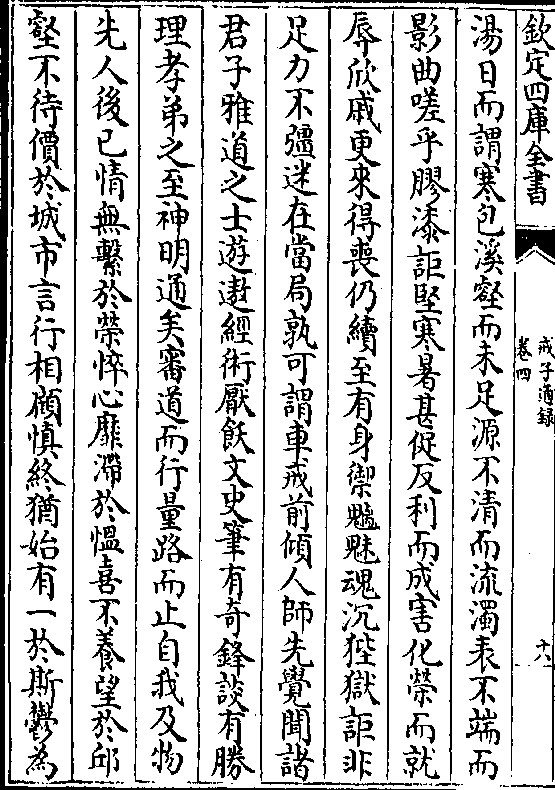 欽定四庫全書
戒子通録
卷四
十八
湯日而謂寒包溪壑而未足源不清而流濁表不端而
影曲嗟乎膠漆詎堅寒暑甚促反利而成害化榮而就
辱欣戚更來得喪仍續至有身禦魑魅魂沉狴獄詎非
足力不彊迷在當局孰可謂車戒前傾人師先覺聞諸
君子雅道之士遊遨經術厭飫文史筆有奇鋒談有勝
理孝弟之至神明通矣審道而行量路而止自我及物
先人後已情無繫於榮悴心靡滯於愠喜不養望於邱
壑不待價於城市言行相顧慎終猶始有一於斯鬱為